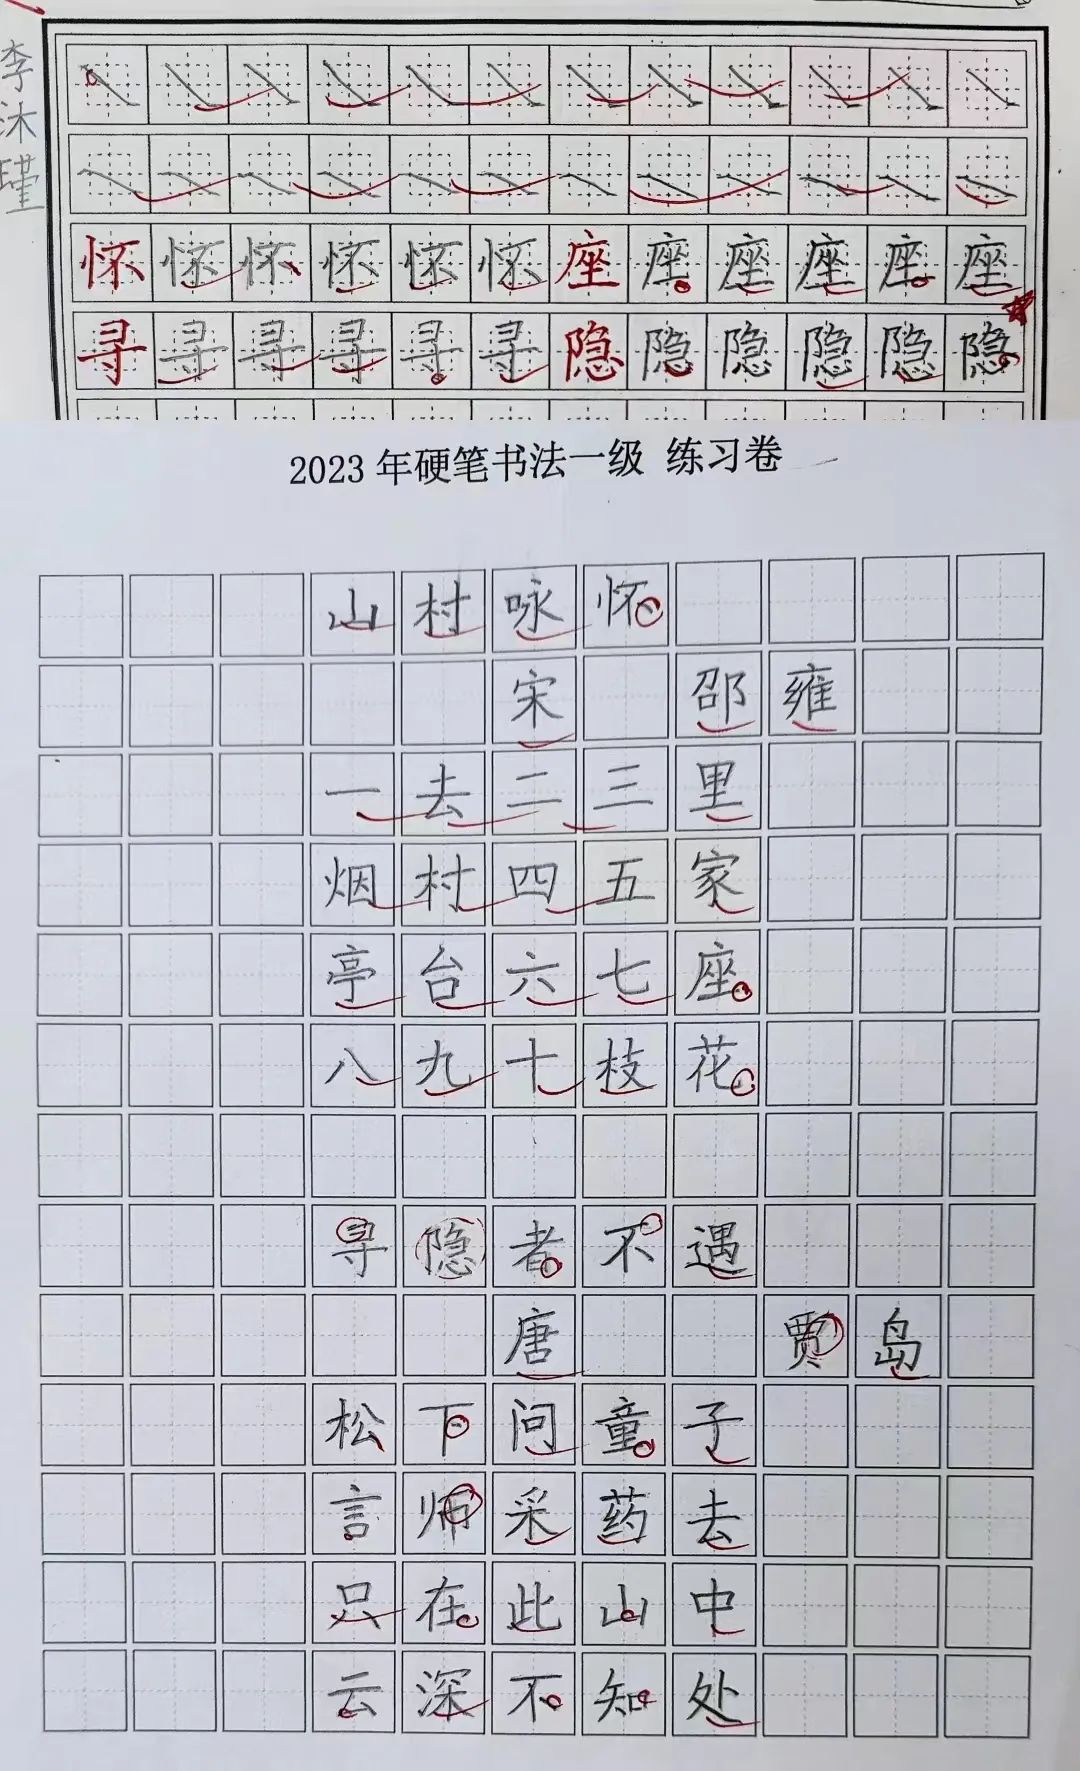 李沐瑾
怀怀怀怀怀怀座座座座座座
寻寻寻寻寻寻隐隐隐隐隐隐
2023年硬笔书法一级 练习卷
山村咏怀
宋 邵雍
一去二三里
烟村四五家
亭台六七座
八九十枝花
寻隐者不遇
唐 贾岛
松下问童子
言师采药去
只在此山中
云深不知处